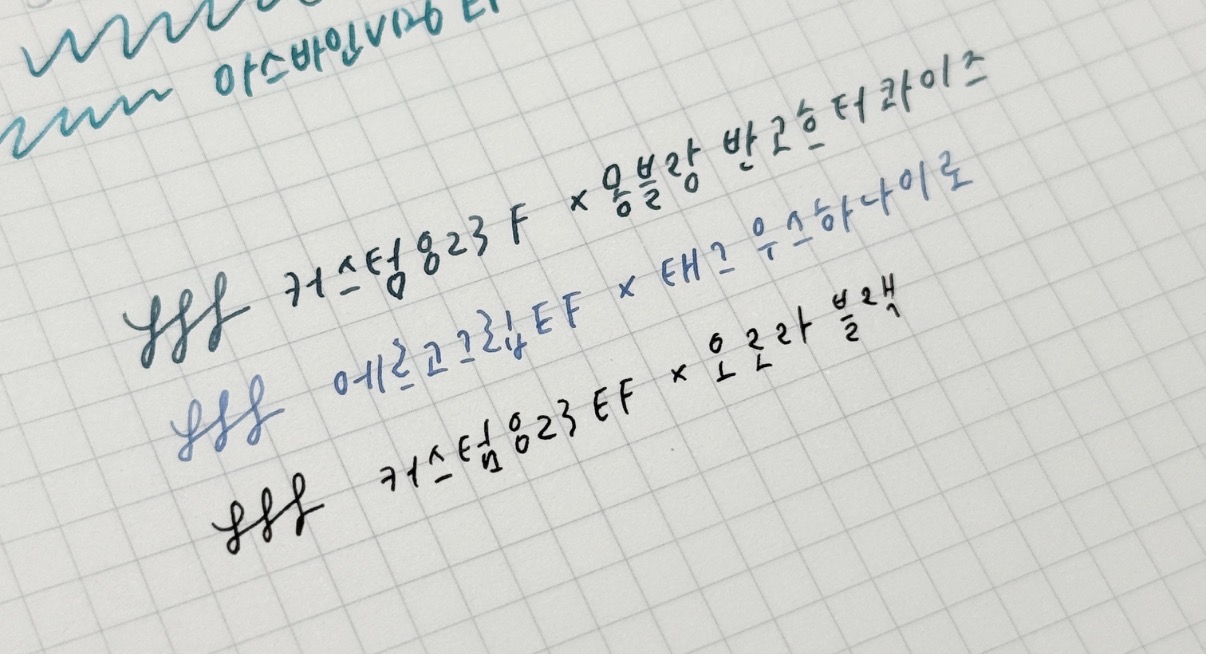 아스바인
커스텀823 F × 몽블랑 반고흐 터콰이즈
에르고그립 EF × 태그 우스하나이로
커스텀823 EF × 오로라 블랙